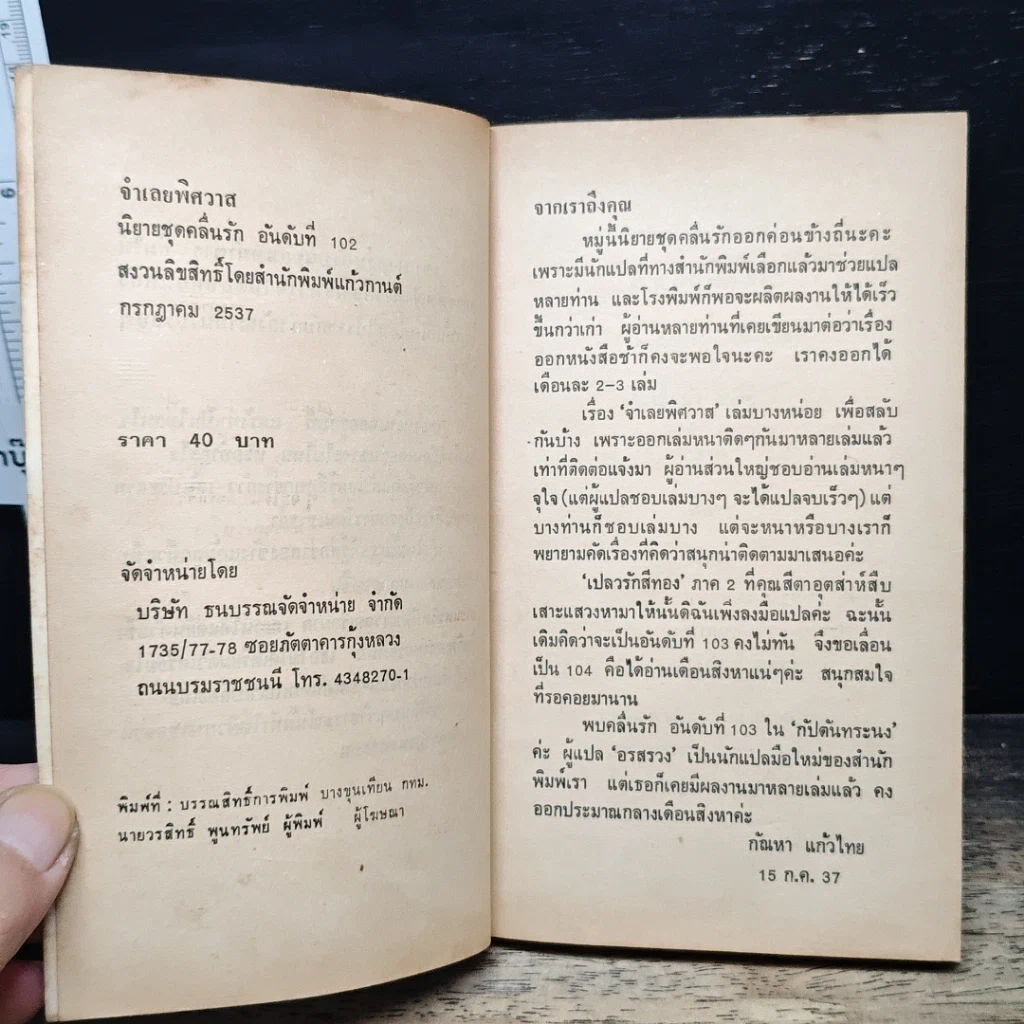 จำเลยพิศวาส
นิยายชุดคลื่นรัก อันดับที่ 102
สงวนลิขสิทธิ์โดยสำนักพิมพ์แก้วกานต์
กรกฎาคม 2537
ราคา 40 บาท
จัดจำหน่ายโดย
บริษัท ธนบรรณจัดจำหน่าย จำกัด
1735/77-78 ซอยภัตตาคารกุ้งหลวง
ถนนบรมราชชนนี โทร. 4348270-1
พิมพ์ที่ : บรรณสิทธิ์การพิมพ์ บางขุนเทียน กทม.
นายวรสิทธิ์ พูนทรัพย์ ผู้พิมพ์ ผู้โฆษณา
จากเราถึงคุณ
หมู่นี้นิยายชุดคลื่นรักออกค่อนข้างถี่นะคะ
เพราะมีนักแปลที่ทางสำนักพิมพ์เลือกแล้วมาช่วยแปล
หลายท่าน และโรงพิมพ์ก็พอจะผลิตผลงานให้ได้เร็ว
ขึ้นกว่าเก่า ผู้อ่านหลายท่านที่เคยเขียนมาต่อว่าเรื่อง
ออกหนังสือช้าก็คงจะพอใจนะคะ เราคงออกได้
เดือนละ 2-3 เล่ม
เรื่อง 'จำเลยพิศวาส' เล่มบางหน่อย เพื่อสลับ
กันบ้าง เพราะออกเล่มหนาติดๆกันมาหลายเล่มแล้ว
เท่าที่ติดต่อแจ้งมา ผู้อ่านส่วนใหญ่ชอบอ่านเล่มหนาๆ
จุใจ (แต่ผู้แปลชอบเล่มบางๆ จะได้แปลจบเร็วๆ) แต่
บางท่านก็ชอบเล่มบาง แต่จะหนาหรือบางเราก็
พยายามคัดเรื่องที่คิดว่าสนุกน่าติดตามมาเสนอค่ะ
'เปลวรักสีทอง' ภาค 2 ที่คุณสีตาอุตส่าห์สืบ
เสาะแสวงหามาให้นั้นดิฉันเพิ่งลงมือแปลค่ะ ฉะนั้น
เดิมคิดว่าจะเป็นอันดับที่ 103 คงไม่ทัน จึงขอเลื่อน
เป็น 104 คือได้อ่านเดือนสิงหาแน่ๆค่ะ สนุกสมใจ
ที่รอคอยมานาน
พบคลื่นรัก อันดับที่ 103 ใน 'กัปตันทระนง'
ค่ะ ผู้แปล 'อรสรวง' เป็นนักแปลมือใหม่ของสำนัก
พิมพ์เรา แต่เธอก็เคยมีผลงานมาหลายเล่มแล้ว คง
ออกประมาณกลางเดือนสิงหาค่ะ
กัณหา แก้วไทย
15 ก.ค. 37